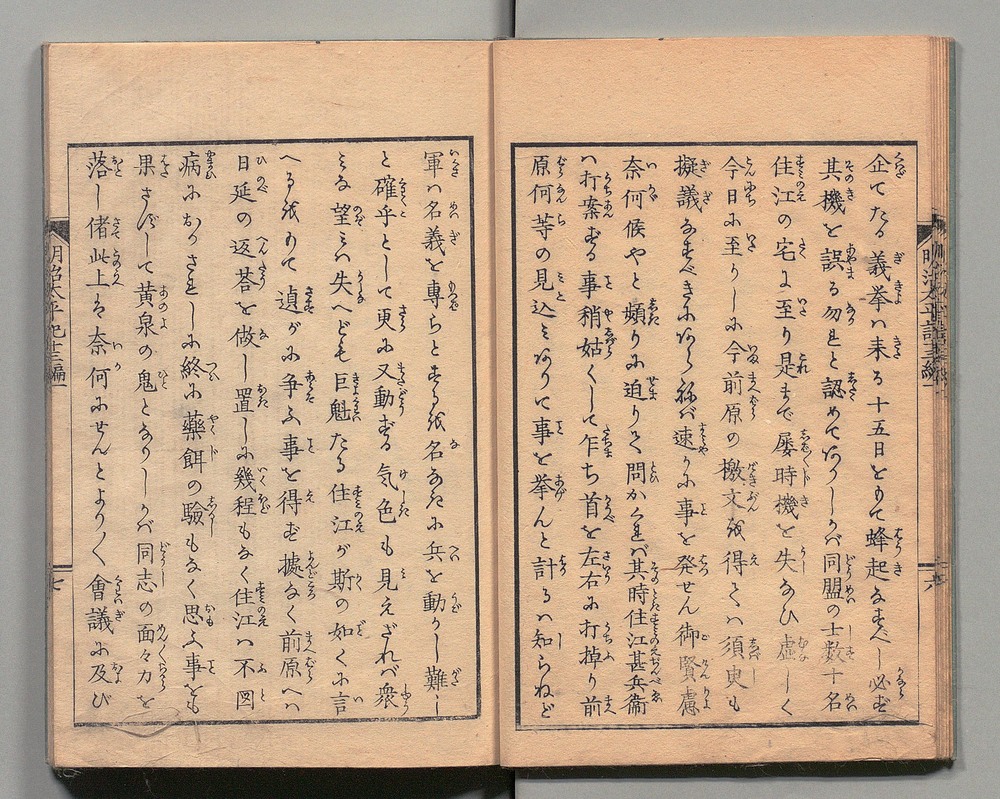 企てたる義挙ハ来る十五日をもて蜂起なすべし必ず
其機を誤る勿れと認めてありしかバ同盟の士数十名
住江の宅に至り是まで屡時機を失なひ虚しく
今日に至りしに今前原の檄文を得てハ須臾も
擬議なすべきにあらねバ速かに事を発せん御賢慮
奈何候やと頻りに迫りて問かくれバ其時住江甚兵衞
ハ打案ずる事稍姑くして乍ち首を左右に打掉り前
原何等の見込ミありて事を挙んと計るハ知らねど
軍ハ名義を専らとするを名なきに兵を動かし難し
と確乎として更に又動ずる気色も見えざれバ衆
みな望ミハ失へども巨魁たる住江が斯の如くに言
へるをもて遉がに争ふ事を得ず據なく前原へハ
日延の返荅を做し置しに幾程もなく住江ハ不図
病におかされしに終に藥餌の驗もなく思ふ事も
果さずして黄泉の鬼となりしかバ同志の面々力を
落し偖此上は奈何にせんとより〱會議に及び
明治太平記十三編
七
六